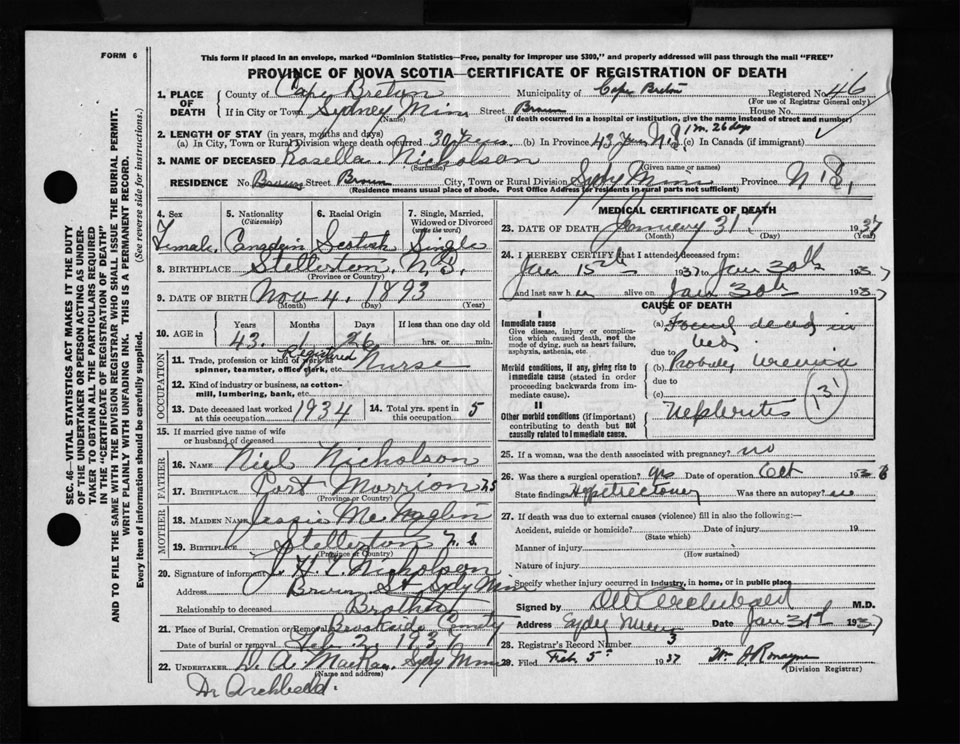 FORM 6
This form if placed in an envelope, marked "Dominion Statistics—Free, penalty for improper use $300," and properly addressed will pass through the mail "FREE"
PROVINCE OF NOVA SCOTIA—CERTIFICATE OF REGISTRATION OF DEATH
SEC. 46—VITAL STATISTICS ACT MAKES IT THE DUTY
OF THE UNDERTAKER OR PERSON ACTING AS UNDER-
TAKER TO OBTAIN ALL THE PARTICULARS REQUIRED
IN THE "CERTIFICATE OF REGISTRATION OF DEATH"
AND TO FILE THE SAME WITH THE DIVISION REGISTRAR WHO SHALL ISSUE THE BURIAL PERMIT.
WRITE PLAINLY WITH UNFADING INK. THIS IS A PERMANENT RECORD.
Every item of information should be carefully supplied. (See reverse side for instructions.)
1. PLACE OF DEATH
County of Cape Breton Municipality of Cape Breton Registered No. 46
(For use of Registrar General only)
If in City or Town Sydney Mines Street Brown House No.
(Name) (If death occurred in a hospital or institution, give the name instead of street and number)
2. LENGTH OF STAY (in years, months and days)
(a) In City, Town or Rural Division where death occurred 30 years (b) In Province 43 years 1 m. 26 days (c) In Canada (if immigrant)
3. NAME OF DECEASED Rosella Nicholson
(Surname) (Given name or names)
RESIDENCE No. Street Brown City, Town or Rural Division Sydy Mines Province N.S.
(Residence means usual place of abode. Post Office Address for residents in rural parts not sufficient)
4. Sex 5. Nationality (Citizenship) 6. Racial Origin 7. Single, Married, Widowed or Divorced (write the word)
Female Canadian Scotish Single
8. BIRTHPLACE Stellerton, N.S.
(Province or Country)
9. DATE OF BIRTH Nov 4. 1893
(Month) (Day) (Year)
10. AGE in Years Months Days If less than one day old
43 26 hrs. or min.
OCCUPATION
11. Trade, profession or kind of work as spinner, teamster, office clerk, etc. Registered Nurse
12. Kind of industry or business, as cotton-mill, lumbering, bank, etc.
13. Date deceased last worked at this occupation 1934 14. Total yrs. spent in this occupation 5
15. If married give name of wife or husband of deceased
FATHER
16. NAME Niel Nicholson
17. BIRTHPLACE Port N.S
(Province or Country)
MOTHER
18. MAIDEN NAME Jessie
19. BIRTHPLACE Stellerton N.S.
(Province or Country)
20. Signature of informant Nicholson
Address Brown St Sydy Min
Relationship to deceased Brother
21. Place of Burial, Cremation or Removal Brookside
Date of burial or removal Feb 2. 1937
22. UNDERTAKER D. A. MacRae Sydy Mines
(Name and address)
Dr Archbald.
MEDICAL CERTIFICATE OF DEATH
23. DATE OF DEATH January 31 1937
(Month) (Day) (Year)
24. I HEREBY CERTIFY that I attended deceased from:
Jan 15th 1937 to Jan 30th 1937
and last saw her alive on Jan 30th 1937
CAUSE OF DEATH
I
Immediate cause
Give disease, injury or complication which caused death, not the mode of dying, such as heart failure, asphyxia, asthenia, etc.
(a) Found dead in bed
due to
Morbid conditions, if any, giving rise to immediate cause (stated in order proceeding backwards from immediate cause).
(b) Probably uremia
due to
(c)
131
II
Other morbid conditions (if important) contributing to death but not causally related to immediate cause.
Nephritis
25. If a woman, was the death associated with pregnancy? no
26. Was there a surgical operation? yes Date of operation Oct 1936
State findings Was there an autopsy? no
27. If death was due to external causes (violence) fill in also the following:—
Accident, suicide or homicide? Date of injury 19
(State which)
Manner of injury
(How sustained)
Nature of injury
Specify whether injury occurred in industry, in home, or in public place
Signed by Archibald M.D.
Address Sydy Mines Date Jan 31st 1937
28. Registrar's Record Number 3
29. Filed Feb 5th 1937
(Division Registrar)